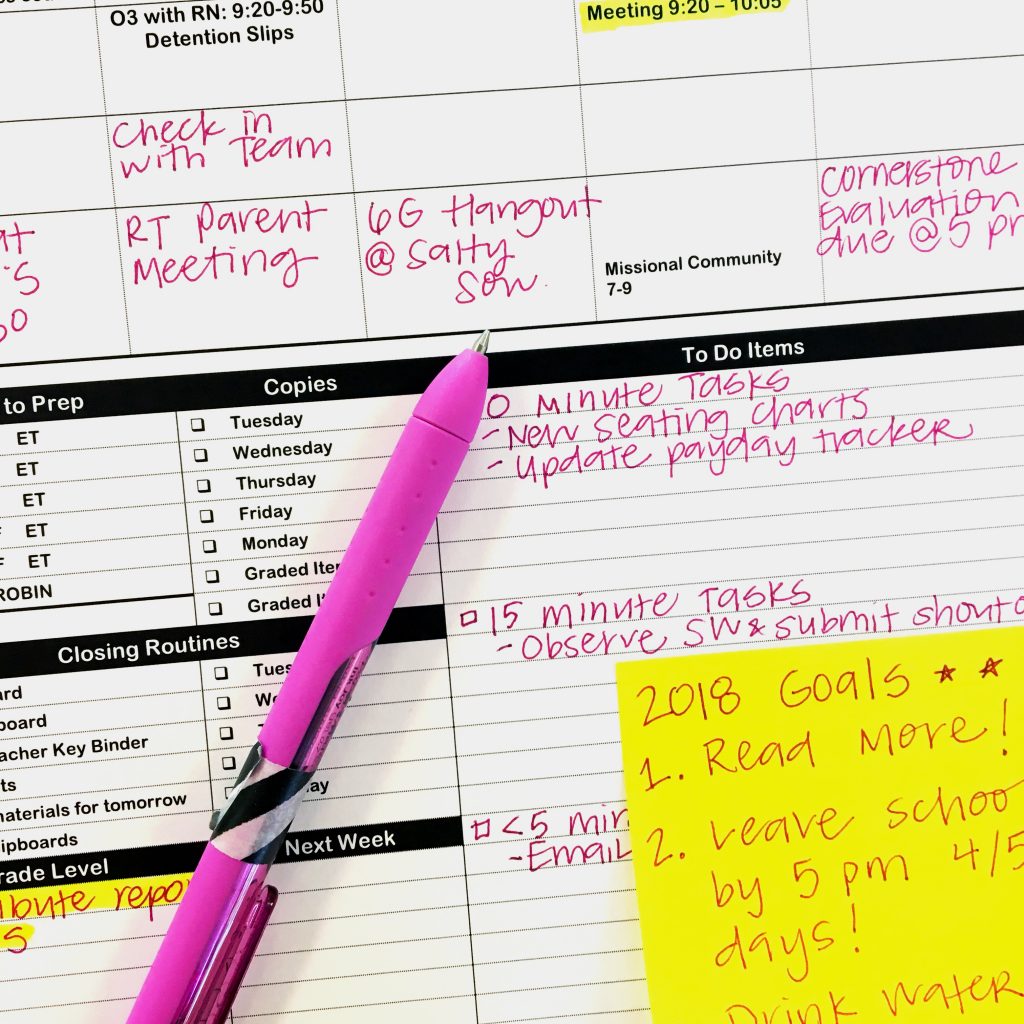 O3 with RN: 9:20-9:50
Detention Slips
Meeting 9:20 – 10:05
Check in
with Team
RT Parent
Meeting
6G Hangout
@ Salty
Sow.
Missional Community
7-9
Cornerstone
Evaluation
due @ 5
to Prep
ET
ET
ET
ET
ET
ROBIN
Copies
Tuesday
Wednesday
Thursday
Friday
Monday
Graded
Graded
To Do Items
0 minute Tasks
- New seating charts
- Update payday tracker
15 minute Tasks
- Observe SW & submit
<5 min
- Email
Closing Routines
Key Binder
materials for tomorrow
Level
Next Week
2018 Goals ★ ★
1. Read More!
2. Leave
by 5 pm 4/5
days!
Drink water